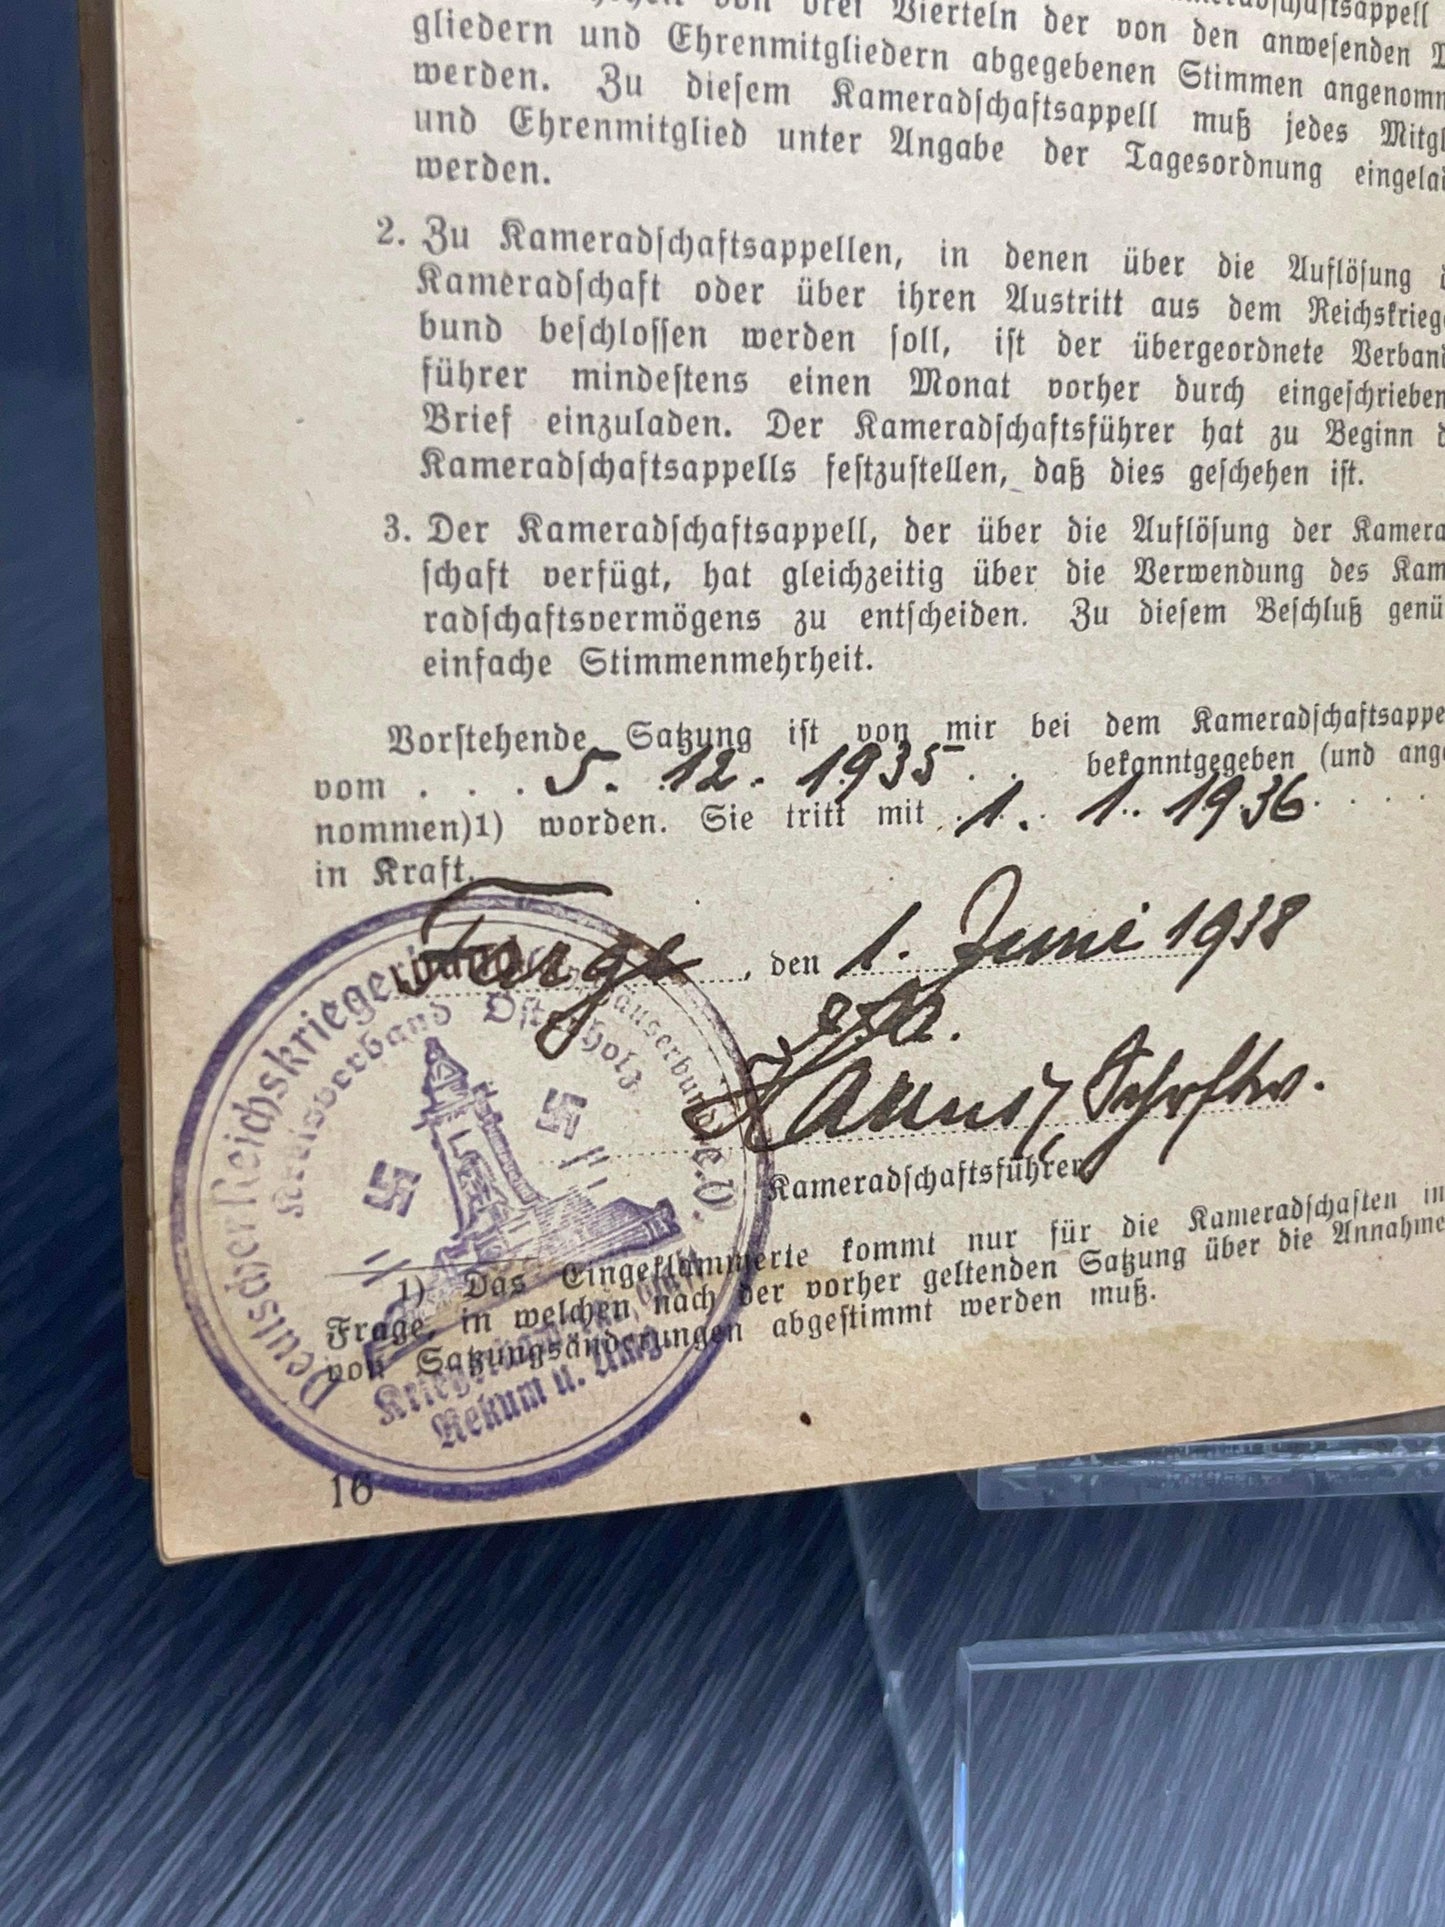 von drei Vierteln der von den anwesenden
gliedern und Ehrenmitgliedern abgegebenen Stimmen angenomm
werden. Zu diesem Kameradschaftsappell muß jedes Mitgl
und Ehrenmitglied unter Angabe der Tagesordnung eingela
werden.
2. Zu Kameradschaftsappellen, in denen über die Auflösung d
Kameradschaft oder über ihren Austritt aus dem Reichskriege
bund beschlossen werden soll, ist der übergeordnete Verband
führer mindestens einen Monat vorher durch eingeschrieben
Brief einzuladen. Der Kameradschaftsführer hat zu Beginn d
Kameradschaftsappells festzustellen, daß dies geschehen ist.
3. Der Kameradschaftsappell, der über die Auflösung der Kamera
schaft verfügt, hat gleichzeitig über die Verwendung des Kam
radschaftsvermögens zu entscheiden. Zu diesem Beschluß genü
einfache Stimmenmehrheit.
Vorstehende Satzung ist von mir bei dem Kameradschaftsappe
vom . . . 5. 12. 1935 . . bekanntgegeben (und ange
nommen)1) worden. Sie tritt mit . 1. 1. 1936 . . . .
in Kraft.
Farge, den 1. Juni 1938
Schriftw.
Kameradschaftsführer
1) Das Eingeklammerte kommt nur für die Kameradschaften in
Frage, in welchen nach der vorher geltenden Satzung über die Annahme
von Satzungsänderungen abgestimmt werden muß.
Deutscher Reichskriegerbund Kyffhäuserbund e.V.
Kreisverband Osterholz
Rekum u.
16